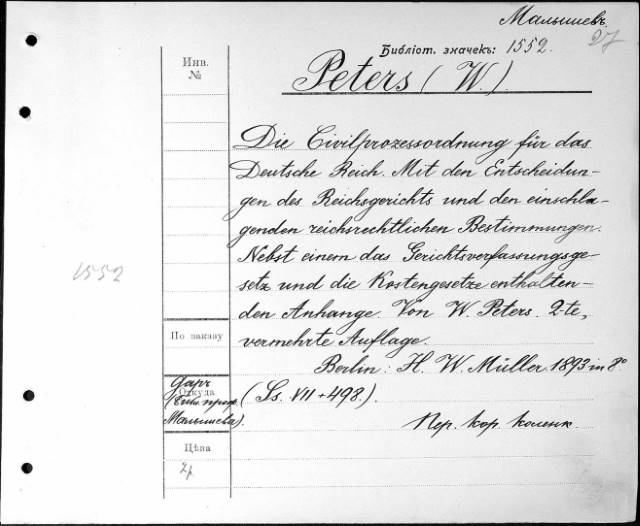 Малышевъ.
27
Библіот. значекъ: 1552.
Инв.
№
Peters (W.).
Die Civilprozessordnung für das
Deutsche Reich. Mit den Entscheidun-
gen des Reichsgerichts und den einschla-
genden reichsrechtlichen Bestimmungen.
Nebst einem das Gerichtsverfassungsge-
setz und die Kostengesetze enthalten-
den Anhange. Von W. Peters. 2-te,
vermehrte Auflage.
Berlin: H. W. Müller 1893 in 8°
(Ss. VII + 498.).
Пер. кор. коленк.
1552
По заказу
Откуда
Даръ
(Библ. проф.
Малышева).
Цѣна
2р